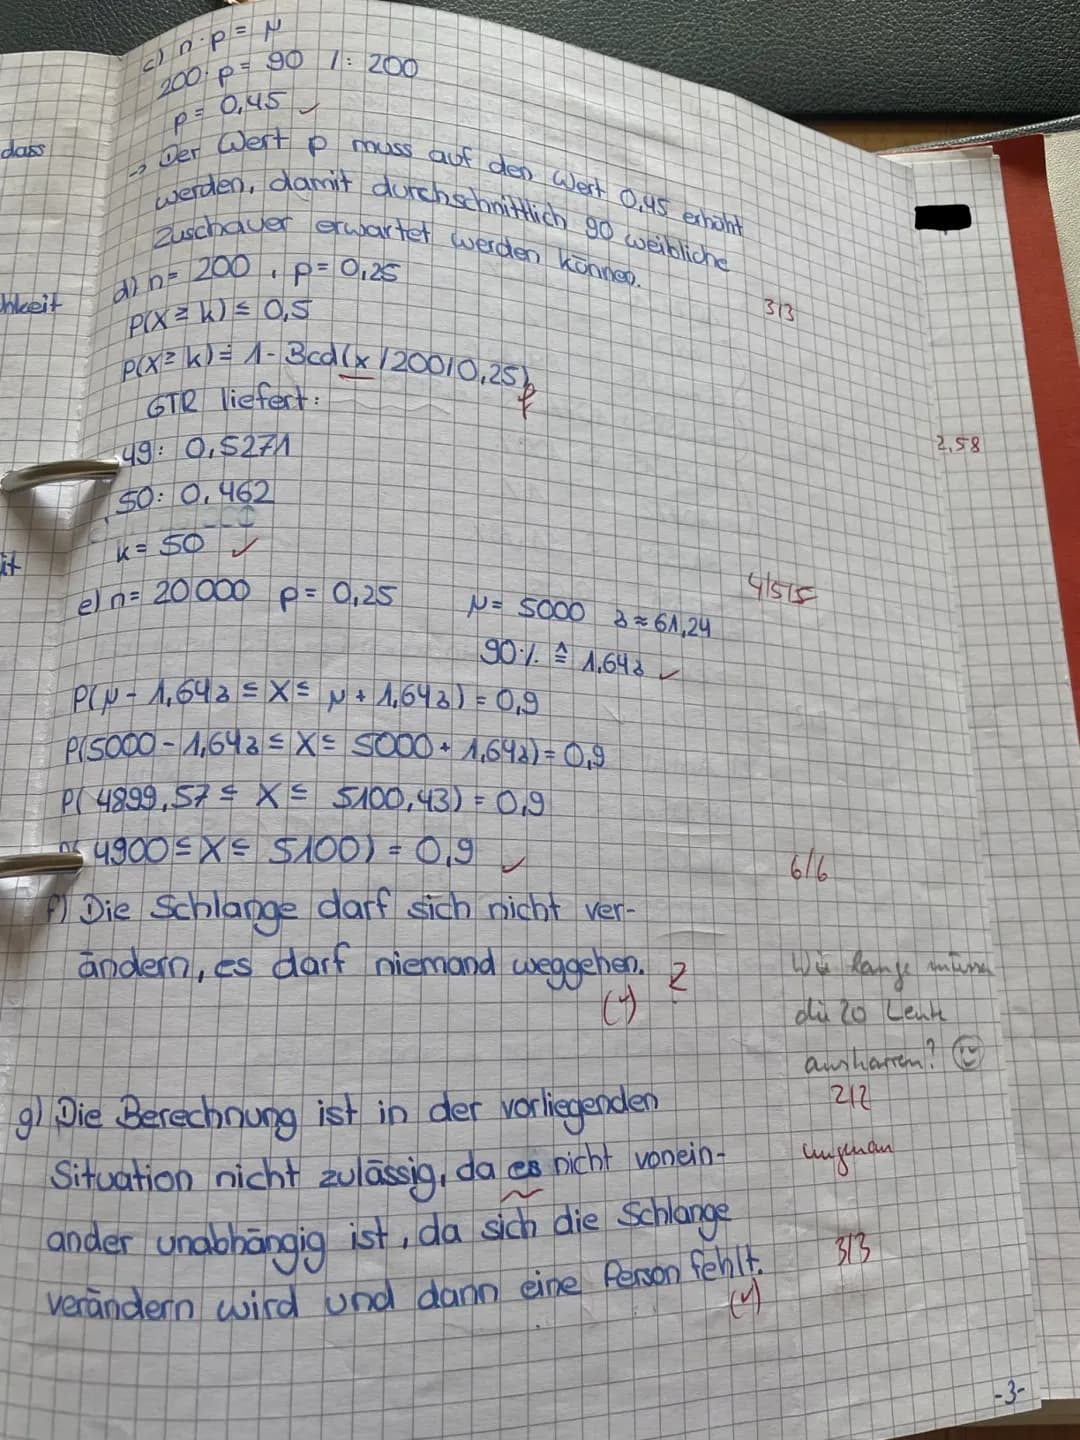 c) n·p = μ
200·p = 90 /: 200
p = 0,45 ✓
dass
-> Der Wert p muss auf den Wert 0,45 erhöht
werden, damit durchschnittlich 90 weibliche
Zuschauer erwartet werden können.
3/3
hkeit
d) n = 200, p = 0,25
P(X ≥ k) ≤ 0,5
P(X ≥ k) = 1 - Bcd(x/200/0,25) f
GTR liefert:
2,58
49: 0,5271
50: 0,462
k = 50 ✓
4/5/5
it
e) n = 20000 p = 0,25 μ = 5000 δ ≈ 61,24
90% ≙ 1,64δ ✓
P(μ - 1,64δ ≤ X ≤ μ + 1,64δ) = 0,9
P(5000 - 1,64δ ≤ X ≤ 5000 + 1,64δ) = 0,9
P(4899,57 ≤ X ≤ 5100,43) = 0,9
4900 ≤ X ≤ 5100) = 0,9 ✓
6/6
f) Die Schlange darf sich nicht ver-
ändern, es darf niemand weggehen. (✓)
Wie lange müssen
die 20 Leute
ausharren? ☺
2/2
g) Die Berechnung ist in der vorliegenden
Situation nicht zulässig, da es nicht vonein-
ungenau
ander unabhängig ist, da sich die Schlange
verändern wird und dann eine Person fehlt. (✓)
3/3
-3-